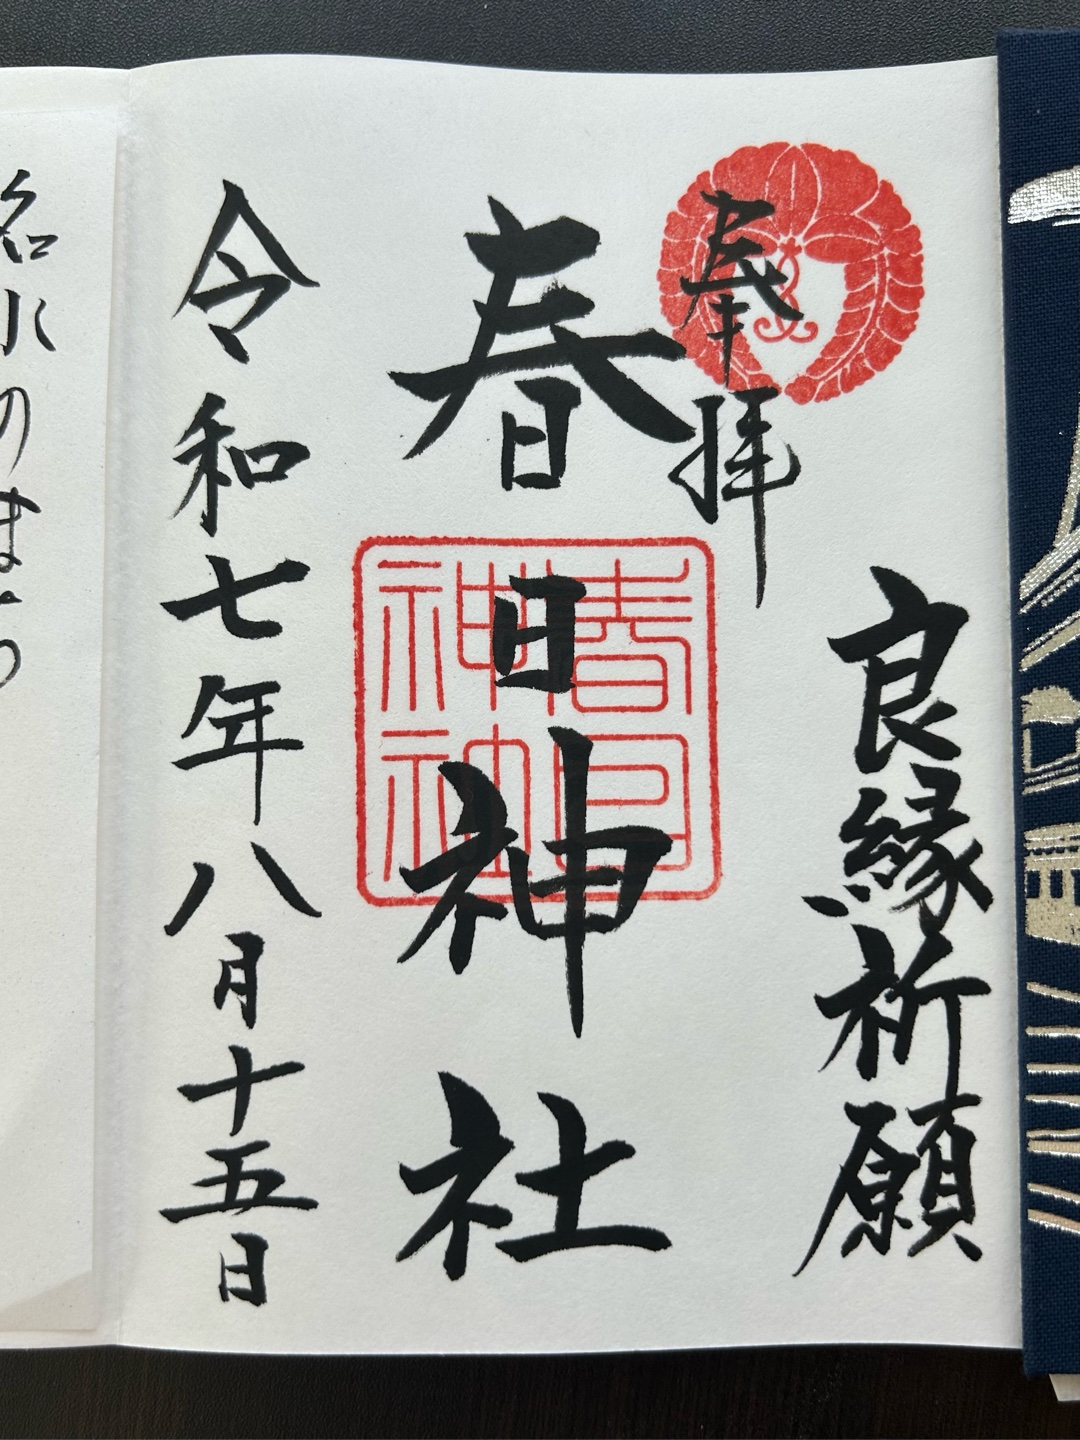 奉拝
良縁祈願
春日神社
春日
神社
令和七年八月十五日
名水のまち